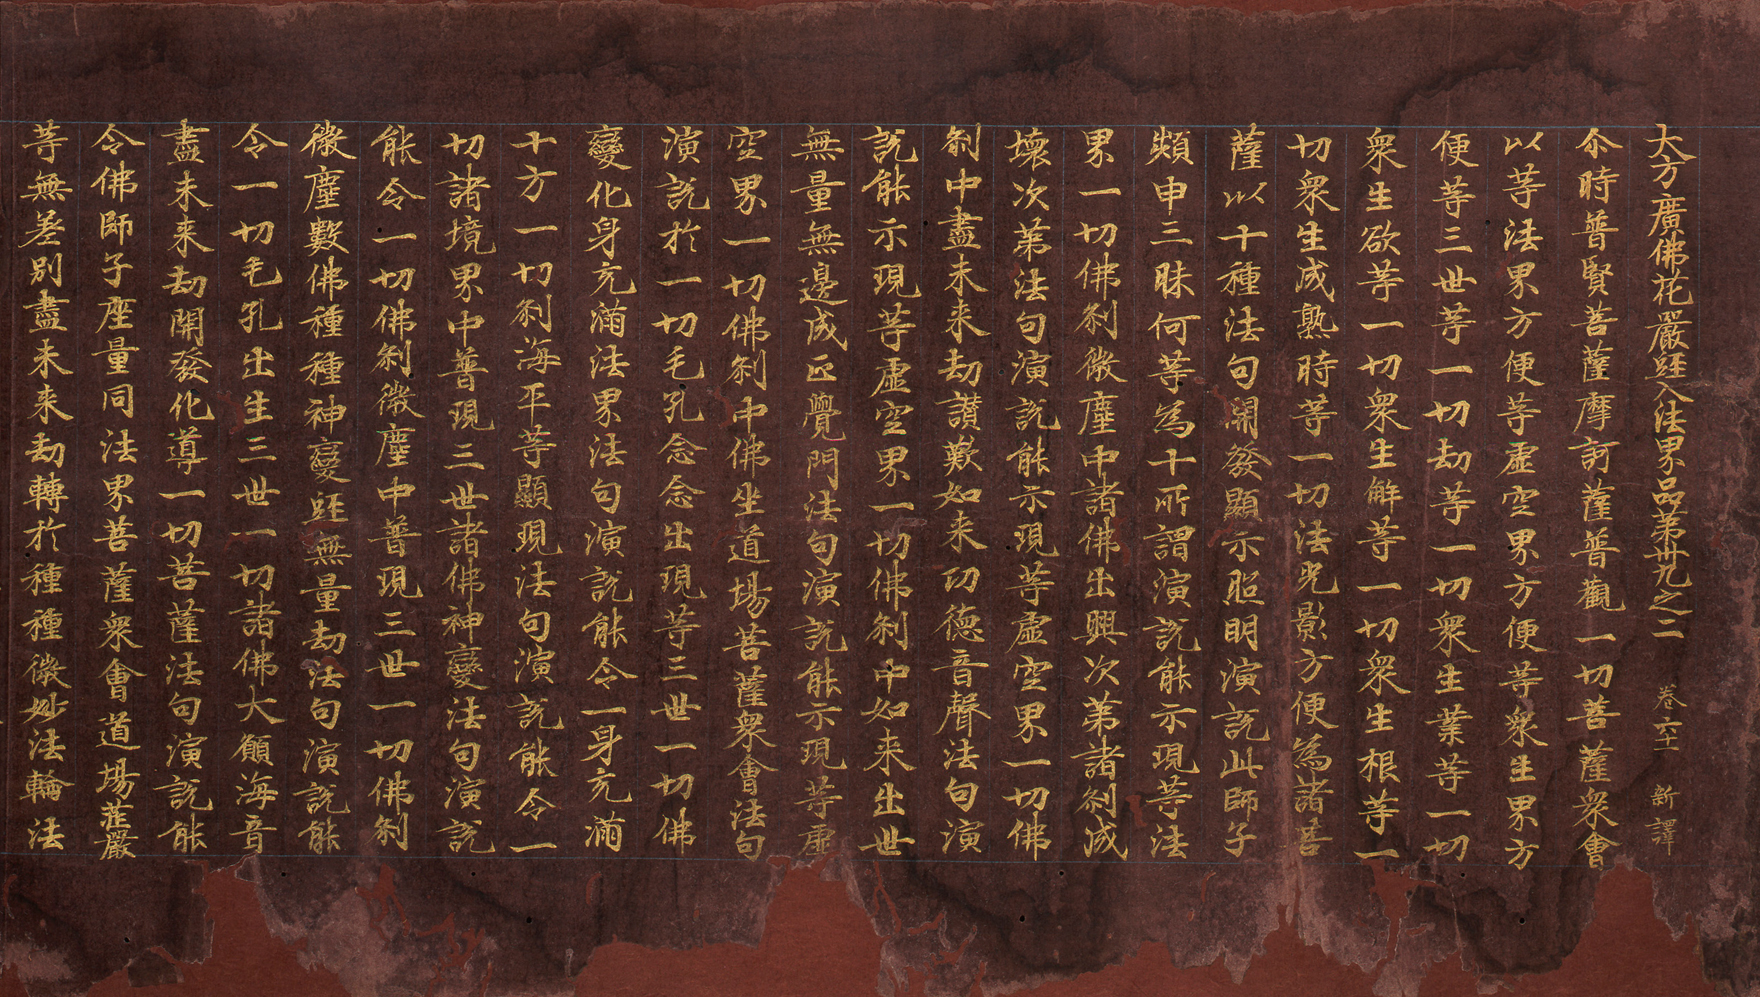 大方廣佛花嚴經入法界品第卅九之二 卷六十一 新譯
尒時普賢菩薩摩訶薩普觀一切菩薩衆會
以等法界方便等虛空界方便等衆生界方
便等三世等一切劫等一切衆生業等一切
衆生欲等一切衆生解等一切衆生根等一
切衆生成熟時等一切法光影方便爲諸菩
薩以十種法句開發顯示照明演說此師子
頻申三昧何等爲十所謂演說能示現等法
界一切佛刹微塵中諸佛出興次第諸刹成
壞次第法句演說能示現等虛空界一切佛
刹中盡未来劫讃歎如来功德音聲法句演
說能示現等虛空界一切佛刹中如来出世
無量無邊成正覺門法句演說能示現等虛
空界一切佛刹中佛坐道場菩薩衆會法句
演說於一切毛孔念念出現等三世一切佛
變化身充滿法界法句演說能令一身充滿
十方一切刹海平等顯現法句演說能令一
切諸境界中普現三世諸佛神變法句演說
能令一切佛刹微塵中普現三世一切佛刹
微塵數佛種種神變經無量劫法句演說能
令一切毛孔出生三世一切諸佛大願海音
盡未来劫開發化導一切菩薩法句演說能
令佛師子座量同法界菩薩衆會道場莊嚴
等無差別盡未来劫轉於種種微妙法輪法